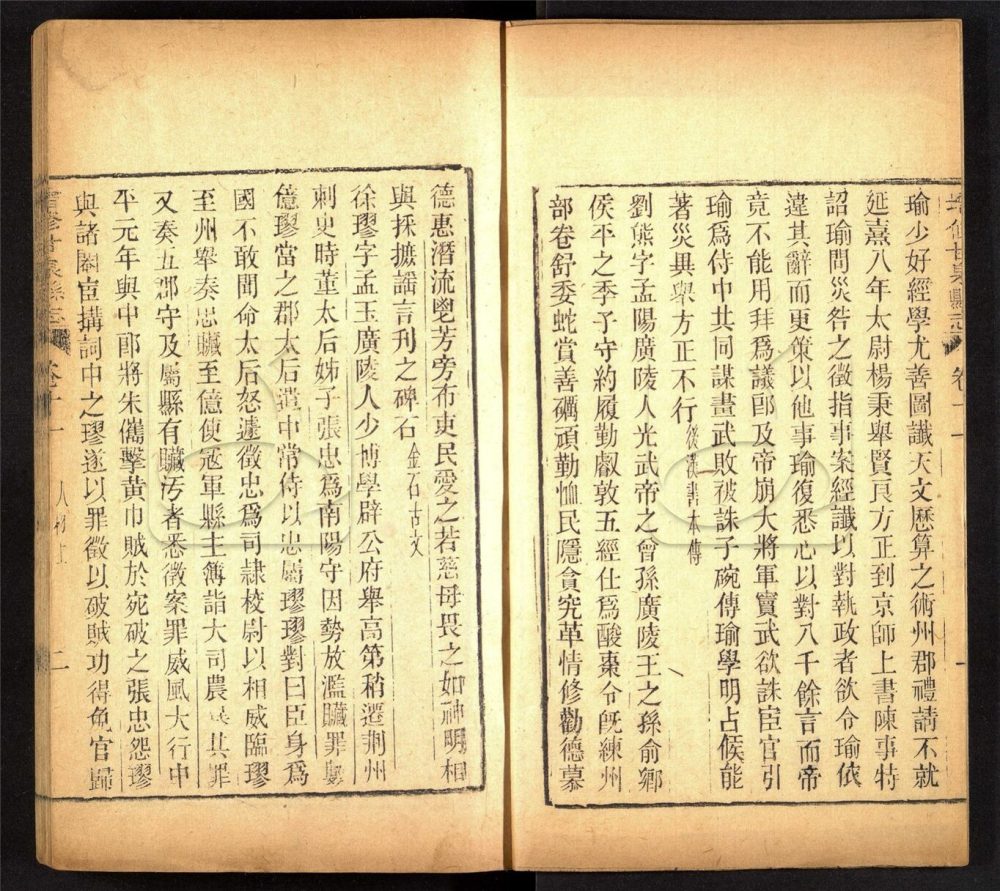 增修甘泉縣志 卷十一
瑜少好經學尤善圖讖天文厯算之術州郡禮請不就
延熹八年太尉楊秉舉賢良方正到京師上書陳事特
詔瑜問災咎之徵指事案經讖以對執政者欲令瑜依
違其辭而更策以他事瑜復悉心以對八千餘言而帝
竟不能用拜爲議郎及帝崩大將軍竇武欲誅宦官引
瑜爲侍中共同謀畫武敗被誅子碗傳瑜學明占候能
著災異舉方正不行後漢書本傳
劉熊字孟陽廣陵人光武帝之曾孫廣陵王之孫俞鄉
侯平之季子守約履勤叡敦五經仕爲酸棗令旣練州
部卷舒委蛇賞善礪頑勤恤民隱貪究革情修勸德慕
德惠潛流鬯芳旁布吏民愛之若慈母畏之如神明相
與採摭謠言刋之碑石金石古文
徐璆字孟玉廣陵人少博學辟公府舉高第稍遷荆州
刺史時董太后姊子張忠爲南陽守因勢放濫贓罪數
億璆當之郡太后遣中常侍以忠屬璆璆對曰臣身爲
國不敢聞命太后怒遽徵忠爲司隸校尉以相威臨璆
至州舉奏忠贓至億使冠軍縣主簿詣大司農以其罪
又奏五郡守及屬縣有贓汚者悉徵案罪威風大行中
平元年與中郎將朱儁擊黃巾賊於宛破之張忠怨璆
與諸閹宦搆詞中之璆遂以罪徵以破賊功得免官歸
增修甘泉縣志 卷十一 人物上 二